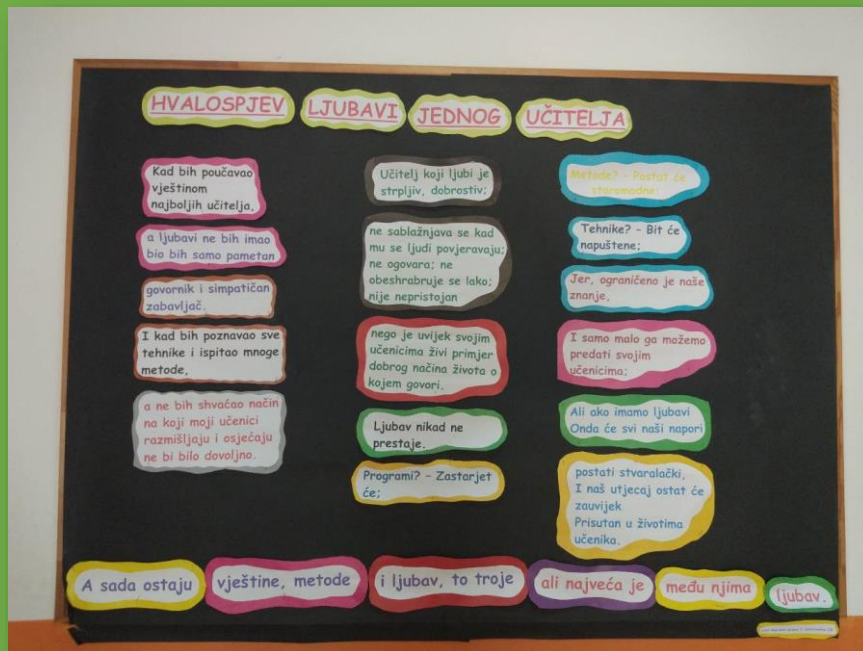 HVALOSPJEV LJUBAVI JEDNOG UČITELJA
Kad bih poučavao
vještinom
najboljih učitelja,
a ljubavi ne bih imao
bio bih samo pametan
govornik i simpatičan
zabavljač.
I kad bih poznavao sve
tehnike i ispitao mnoge
metode,
a ne bih shvaćao način
na koji moji učenici
razmišljaju i osjećaju
ne bi bilo dovoljno.
Učitelj koji ljubi je
strpljiv, dobrostiv;
ne sablažnjava se kad
mu se ljudi povjeravaju;
ne ogovara; ne
obeshrabruje se lako;
nije nepristojan
nego je uvijek svojim
učenicima živi primjer
dobrog načina života o
kojem govori.
Ljubav nikad ne
prestaje.
Programi? - Zastarjet
će;
Metode? - Postat će
staromodne;
Tehnike? - Bit će
napuštene;
Jer, ograničeno je naše
znanje,
I samo malo ga možemo
predati svojim
učenicima;
Ali ako imamo ljubavi
Onda će svi naši napori
postati stvaralački,
I naš utjecaj ostat će
zauvijek
Prisutan u životima
učenika.
A sada ostaju vještine, metode i ljubav, to troje ali najveća je među njima ljubav.